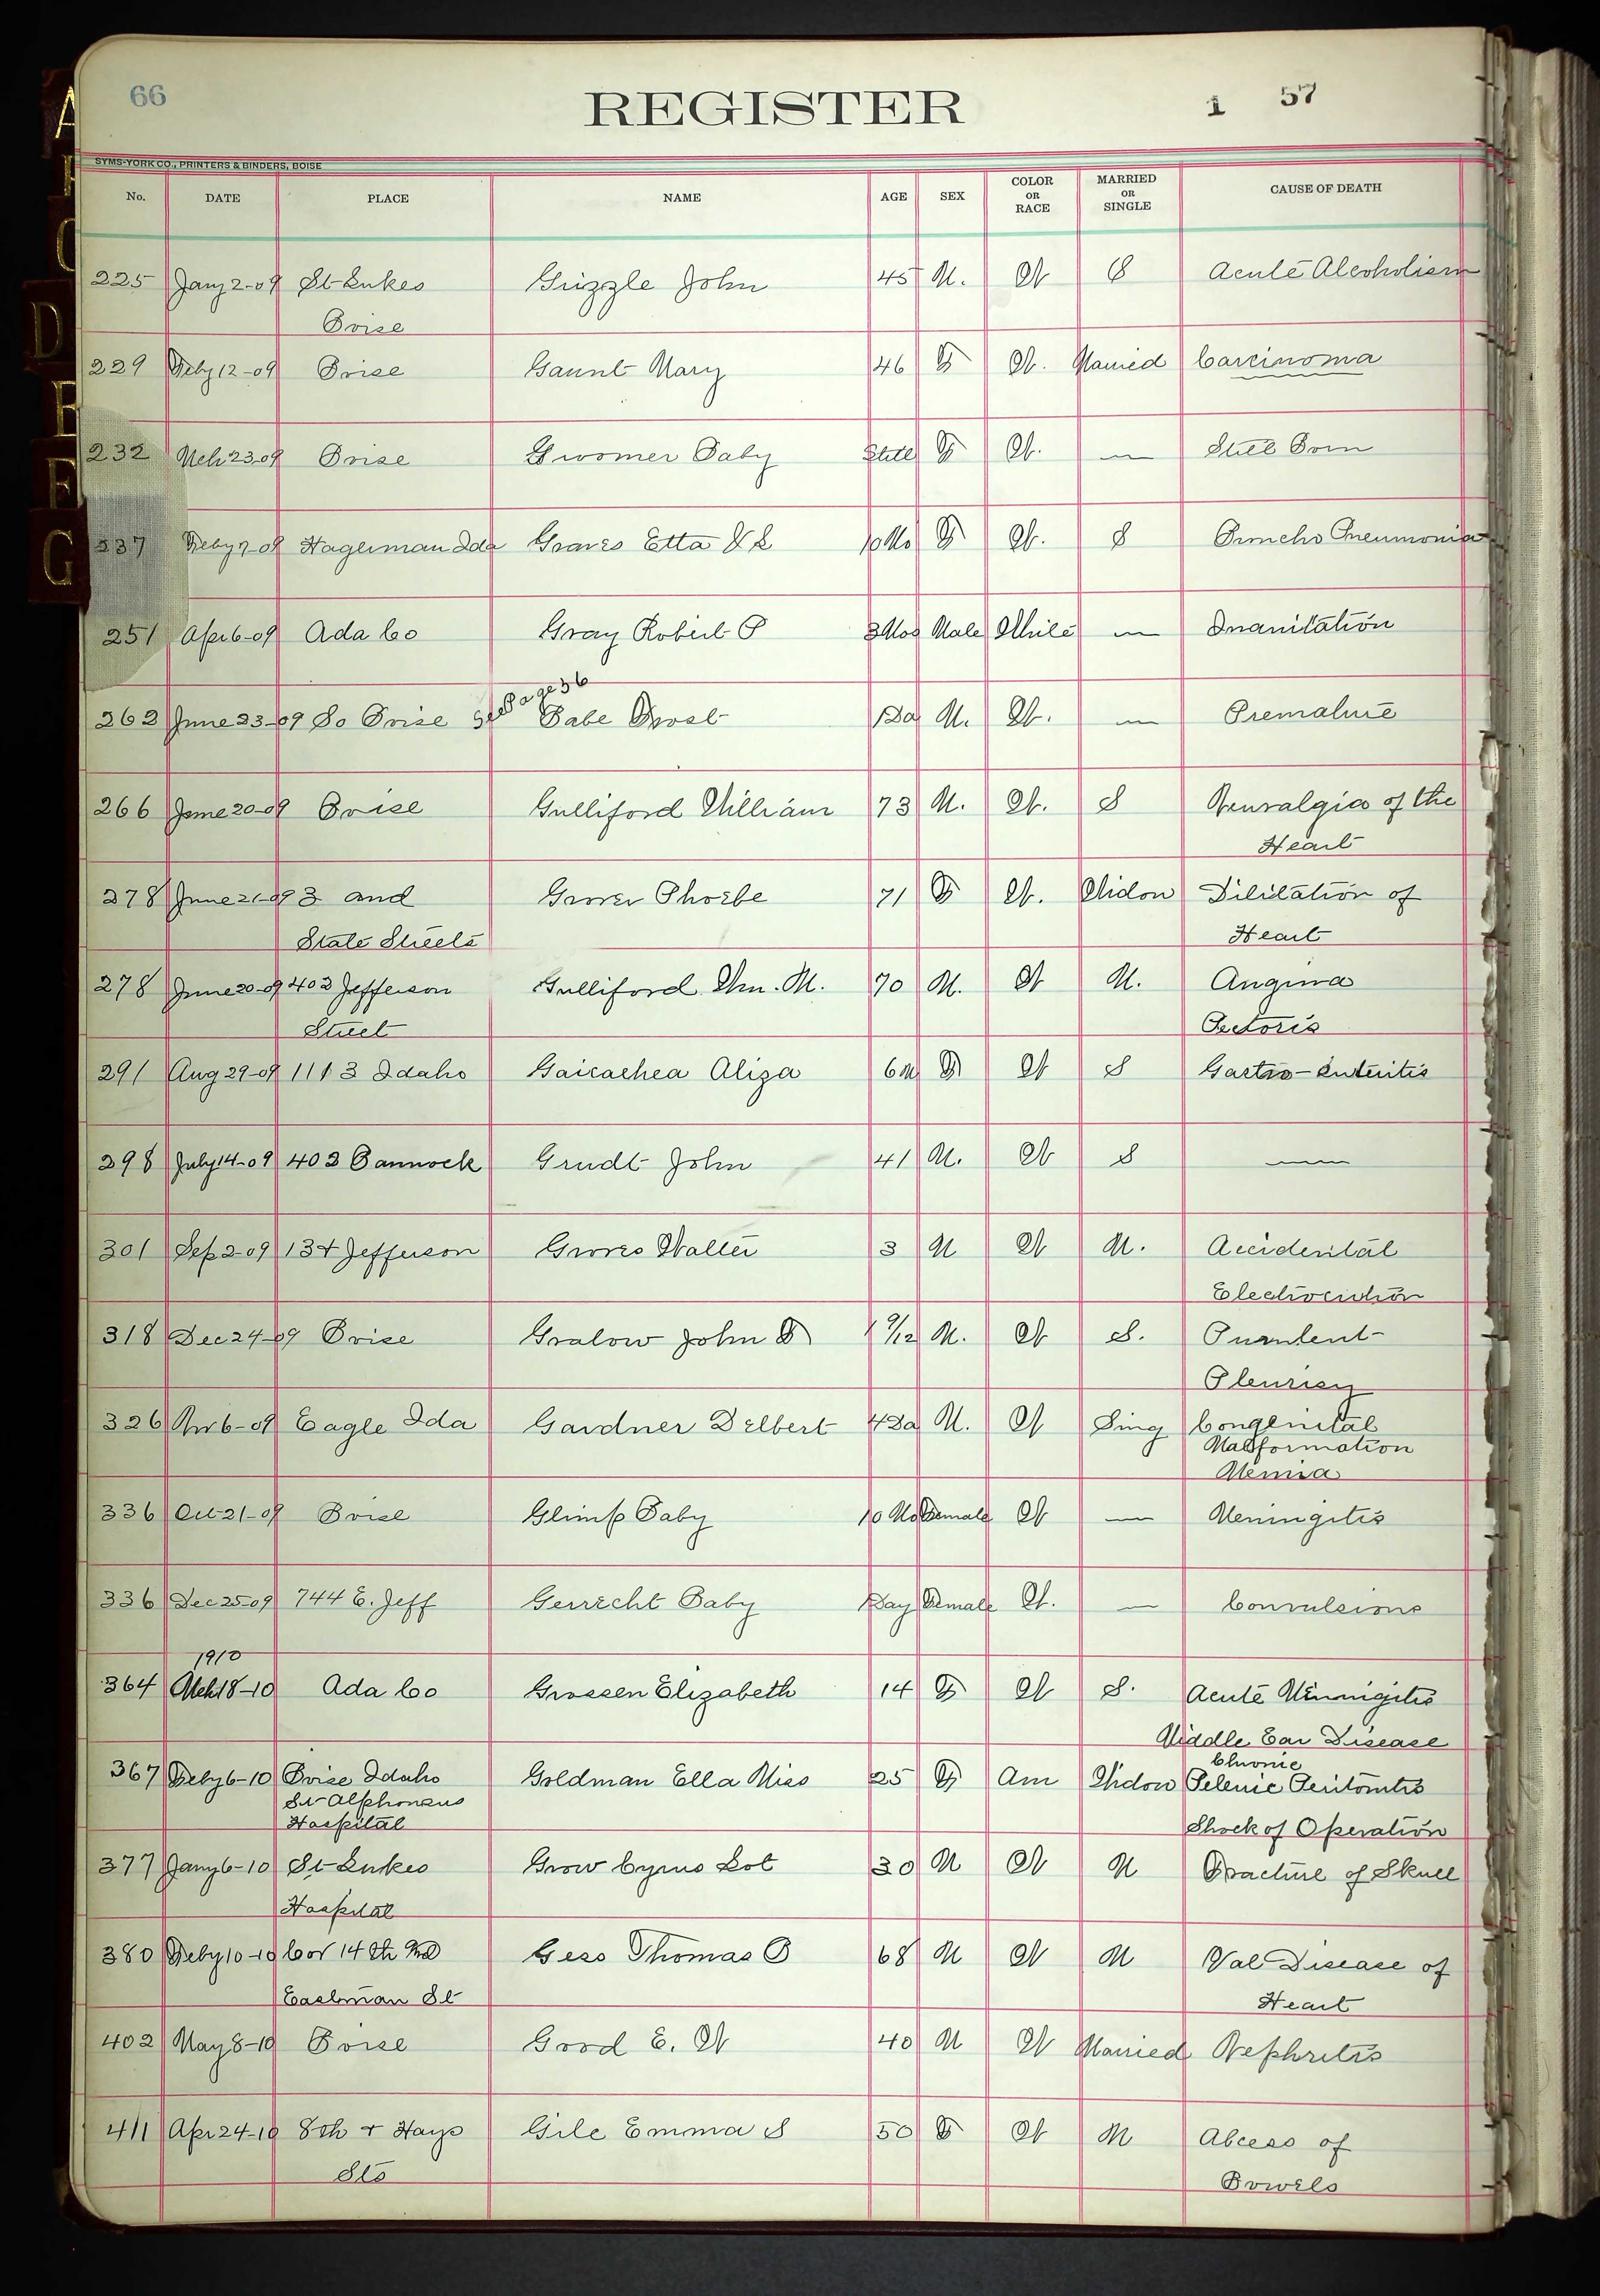 66
REGISTER
1 57
SYMS-YORK CO., PRINTERS & BINDERS, BOISE
No. DATE PLACE NAME AGE SEX COLOR OR RACE MARRIED OR SINGLE CAUSE OF DEATH
225 Jany 2-09 St Lukes Grizzle John 45 M. W S Acute Alcoholism
Boise
229 Feby 12-09 Boise Gaunt Mary 46 F W. Married Carcinoma
232 Mch 23 09 Boise Gwomer Baby Still F W. — Still Born
237 Feby 9-09 Hagerman Ida Graves Etta 10 Mo F W. S Broncho Pneumonia
251 Apr 6-09 Ada Co Gray Robert P 3 Mos Male White — Inanitation
See Page 36
262 June 23-09 So Boise Babe Drost 1 Da M. W. — Premature
266 June 20-09 Boise Gulliford William 73 M. W. S Neuralgia of the
Heart
278 June 21-09 3 and Grover Phoebe 71 F W. Widow Dilitation of
State Streets Heart
278 June 20-09 403 Jefferson Gulliford Wm. M. 70 M. W M. Angina
Street Pectoris
291 Aug 29-09 1113 Idaho Gaicachea Aliza 6 M F W S Gastro-Enteritis
298 July 14-09 403 Bannock Grudt John 41 M. W S —
301 Sep 2-09 134 Jefferson Groves Walter 3 M W M. Accidental
Electrocution
318 Dec 24-09 Boise Gralow John F 1 9/12 M. W S. Purulent
Pleurisy
326 Nov 6-09 Eagle Ida Gardner Delbert 4 Da M. W Sing Congenital
Malformation
336 Oct 21-09 Boise Glimp Baby 10 Mo Female W — Meningitis
336 Dec 25 09 744 E. Jeff Gerrecht Baby Day Female W. — Convulsions
1910
364 Mch 18-10 Ada Co Grossen Elizabeth 14 F W S. Acute Minnigitis
Middle Ear Disease
Chronic
367 Feby 6-10 Boise Idaho Goldman Ella Miss 25 F Am Widow Pelenic Peritonitis
St Alphonsus
Hospital Shock of Operation
377 Jany 6-10 St Lukes Grow Cyrus Lot 30 M W M Fracture of Skull
Hospital
380 Feby 10-10 Cor 14 th and Gess Thomas B 68 M W M Val Disease of
Eastman St Heart
402 May 8-10 Boise Good E. W 40 M W Married Nephritis
411 Apr 24-10 8th + Hays Gile Emma S 50 F W M Abcess of
Sts Bowels
A
D
E
F
G